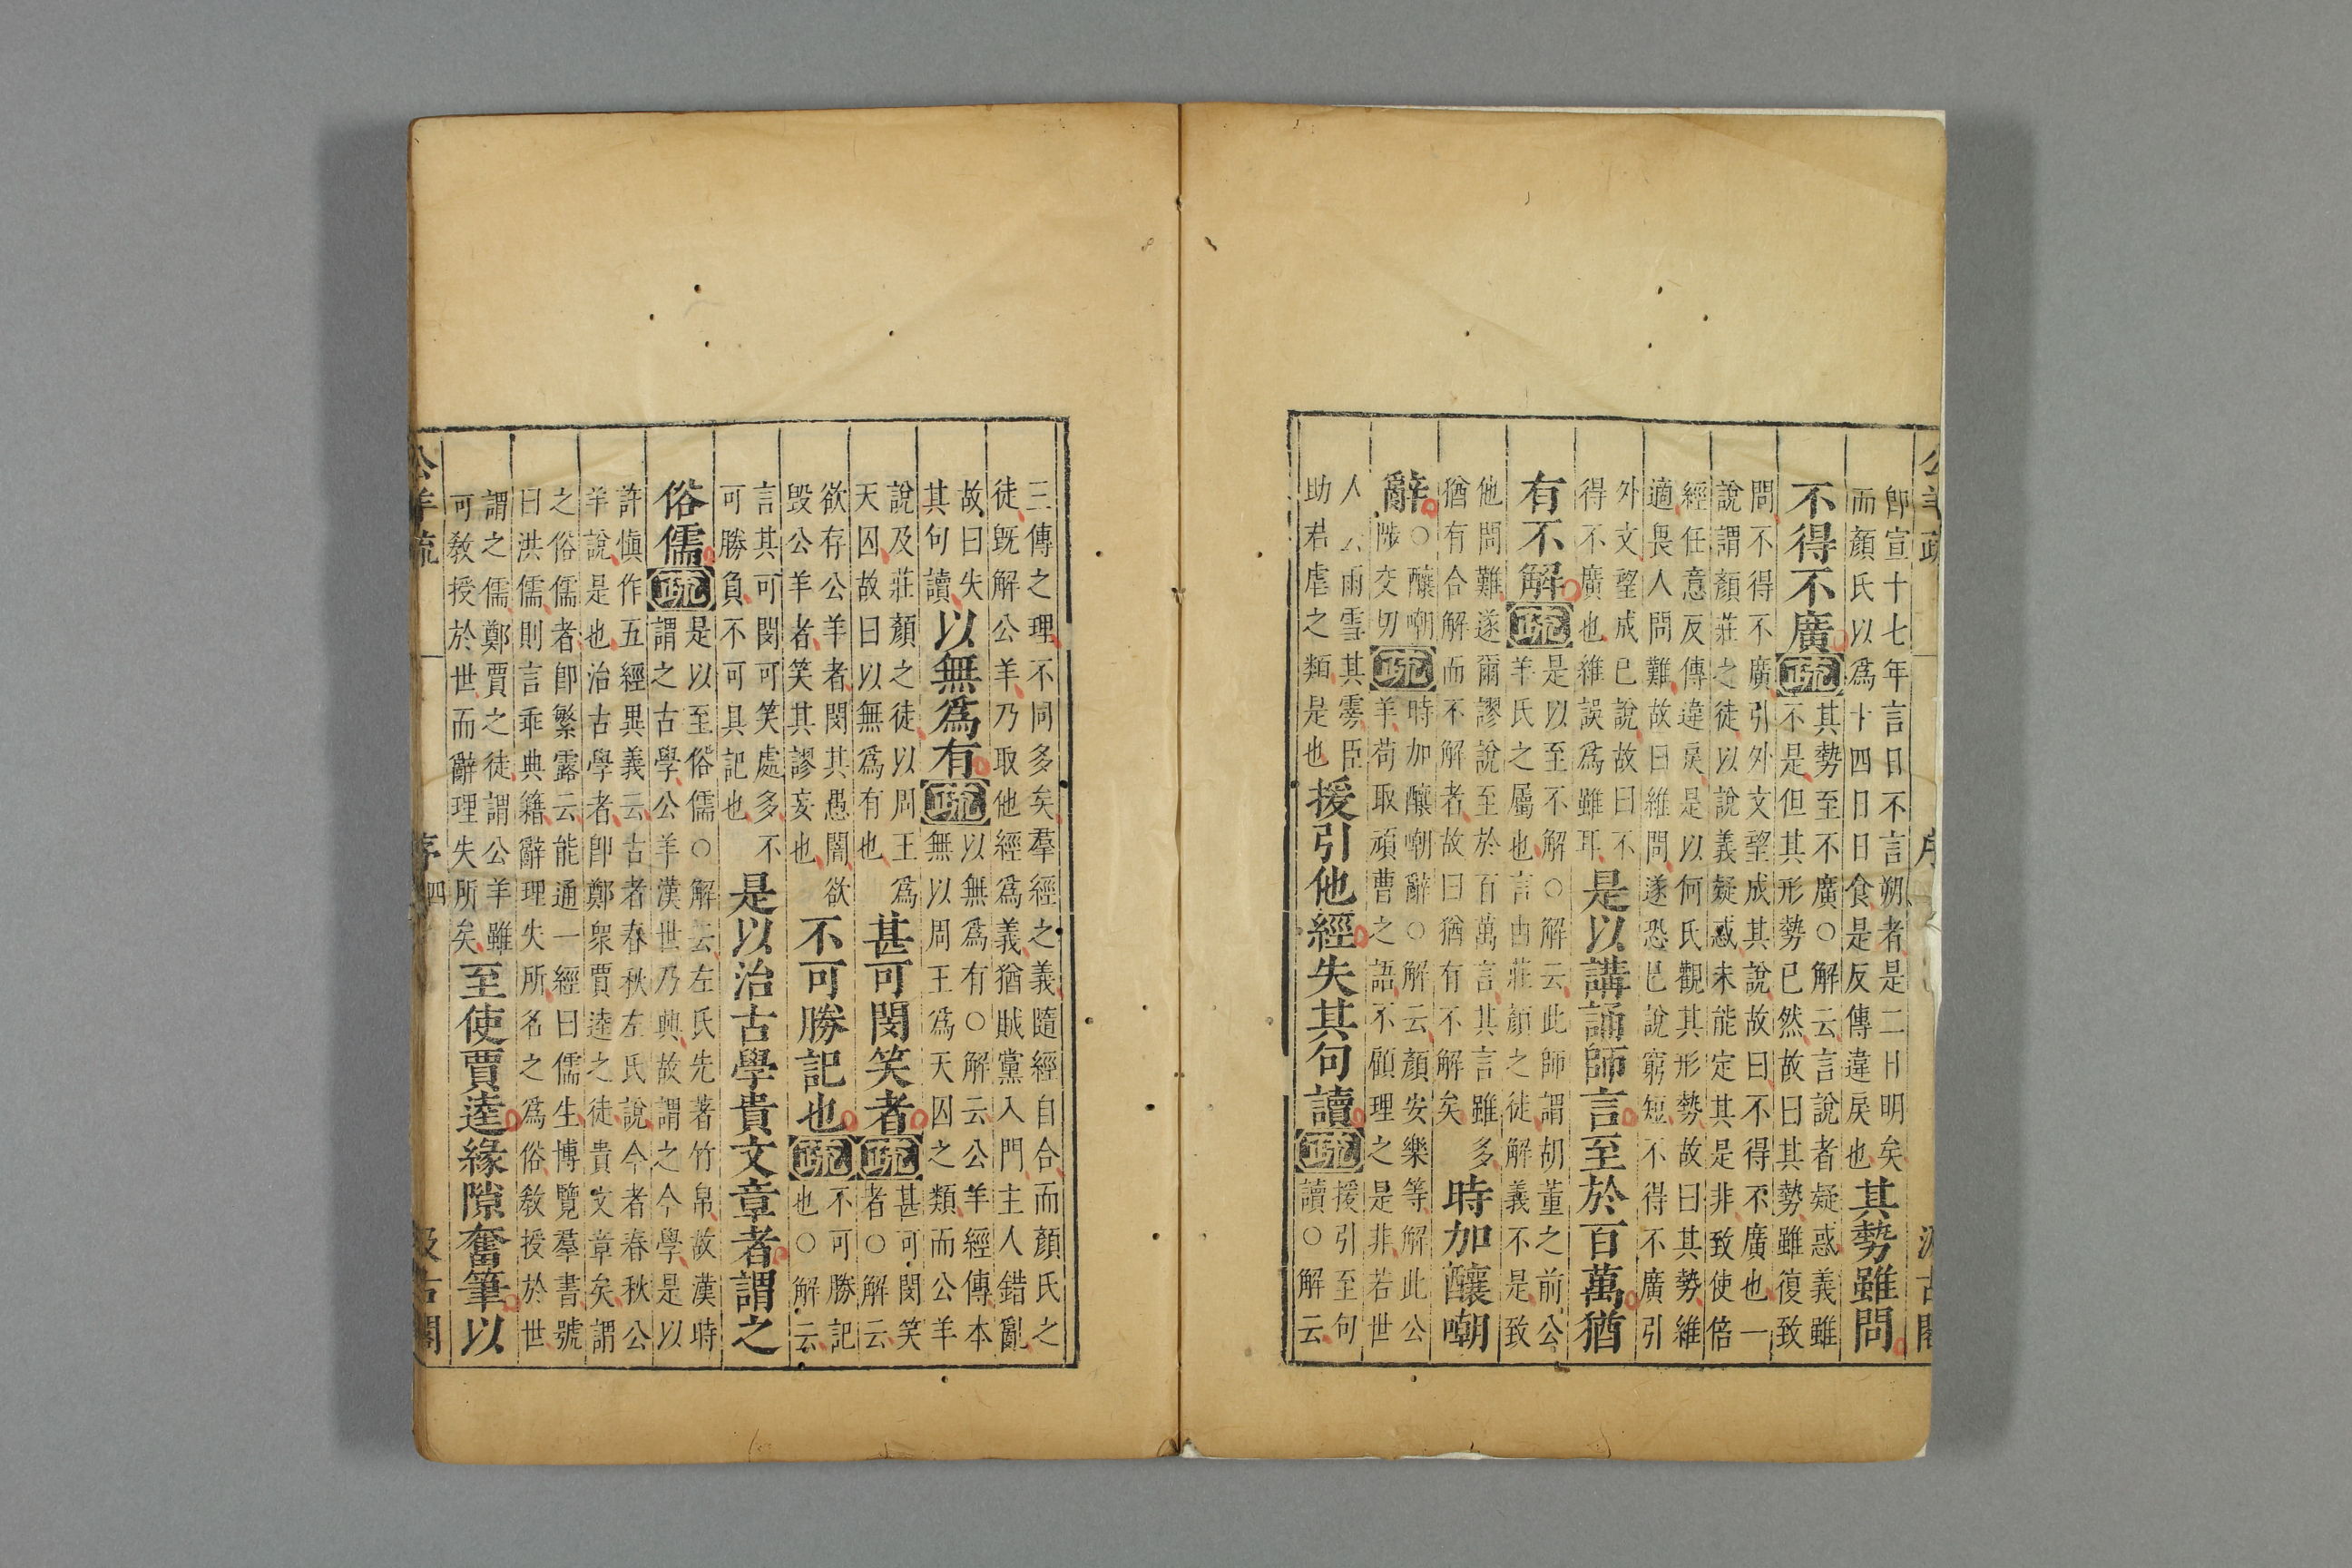 即宣十七年言日不言朔者是二日明矣
而顏氏以爲十四日日食是反傳違戾也
其勢雖問
不得不廣疏
其勢至不廣○解云言說者疑惑義雖
不是但其形勢已然故曰其勢雖復致
問不得不廣引外文望成其說故曰不得不廣也一
說謂顏莊之徒以說義疑惑未能定其是非致使倍
經任意反傳違戾是以何氏觀其形勢故曰其勢維
適畏人問難故曰維問遂恐已說窮短不得不廣引
外文望成已說故曰不
得不廣也維誤爲雖耳
是以講誦師言至於百萬猶
有不解疏
是以至不解○解云此師謂胡董之前公
羊氏之屬也言由莊顏之徒解義不是致
他問難遂爾謬說至於百萬言其言雖多
猶有合解而不解者故曰猶有不解矣
時加釀嘲
辭
○釀嘲
陟交切
疏
時加釀嘲辭○解云顏安樂等解此公
羊苟取頑曹之語不顧理之是非若世
人云雨雪其雱臣
助君虐之類是也
援引他經失其句讀疏
援引至句
讀○解云
三傳之理不同多矣羣經之義隨經自合而顏氏之
徒既解公羊乃取他經爲義猶賊黨入門主人錯亂
故曰失
其句讀
以無爲有疏
以無爲有○解云公羊經傳本
無以周王爲天囚之類而公羊
說及莊顏之徒以周王爲
天囚故曰以無爲有也
甚可閔笑者疏
甚可閔笑
者○解云
欲存公羊者閔其愚闇欲
毀公羊者笑其謬妄也
不可勝記也疏
不可勝記
也○解云
言其可閔可笑處多不
可勝負不可具記也
是以治古學貴文章者謂之
俗儒疏
是以至俗儒○解云左氏先著竹帛故漢時
謂之古學公羊漢世乃興故謂之今學是以
許愼作五經異義云古者春秋左氏說今者春秋公
羊說是也治古學者即鄭衆賈逵之徒貴文章矣謂
之俗儒者即繁露云能通一經曰儒生博覽羣書號
曰洪儒則言乖典籍辭理失所名之爲俗敎授於世
謂之儒鄭賈之徒謂公羊雖
可敎授於世而辭理失所矣
至使賈逵緣隙奮筆以
公羊疏 序 四 汲古閣